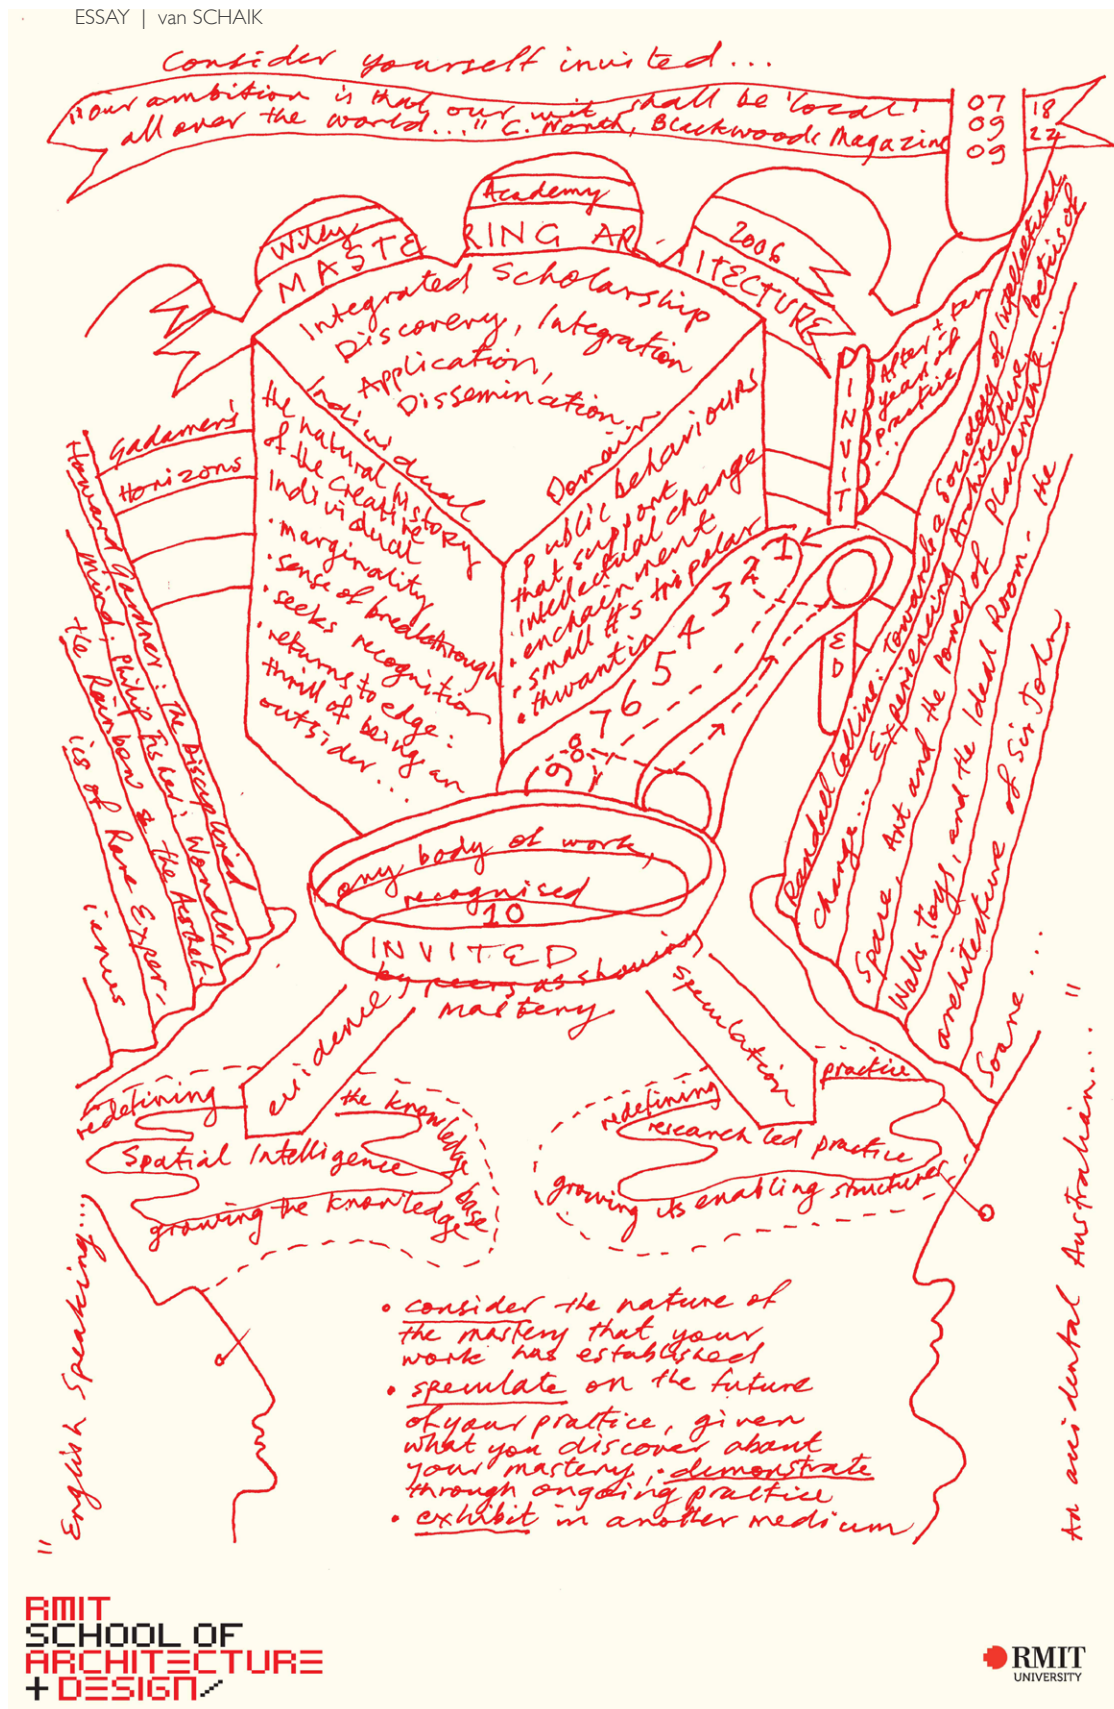 ESSAY | van SCHAIK
Consider yourself invited...
"our ambition is that our wit shall be 'local'
all over the world..." C. North, Blackwoods Magazine
07 18
09 22
09
Wiley
Academy
2006
MASTERING ARCHITECTURE
Integrated Scholarship
Discovery, Integration
Application,
Dissemination
Individual
the natural history
of the creative
Individual
• marginality
• sense of breakthrough
• seeks recognition
• returns to edge:
thrill of being an
outsider...
Domain
public behaviours
that support
intellectual change
• intellectual
• enchainment
• small #'s tripolar
• thwanting
1
2
3
4
5
6
7
8
9
DINVIT
ED
After + ten
years of
practice
...
Gadamer's
Horizons
Howard Gardner: The Disciplined
Mind. Philip Fisher: Wonder,
the Rainbow & the Aesthet-
ics of Rare Exper-
iences
Randall Collins: Towards a Sociology of Intellectual
change... Experiencing Architecture, Poetics of
Space, Art and the Power of Placement...
Walls, Toys, and the Ideal Room - the
architecture of Sir John
Soane...
any body of work,
recognised
10
INVITED
by peers as showing
mastery
evidence
speculation
redefining
the knowledge base
Spatial Intelligence
growing the knowledge
redefining
practice
research led practice
growing its enabling structures
"English Speaking...
An accidental Australian..."
• consider the nature of
the mastery that your
work has established
• speculate on the future
of your practice, given
what you discover about
your mastery, • demonstrate
through ongoing practice
• exhibit in another medium
RMIT
SCHOOL OF
ARCHITECTURE
+ DESIGN/
RMIT
UNIVERSITY